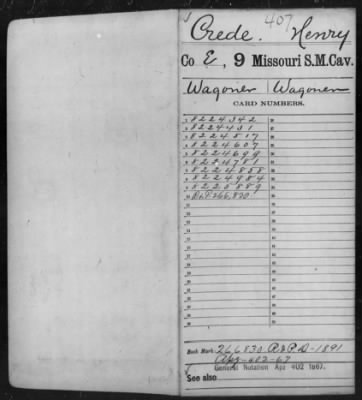 407
Crede, Henry
Co E, 9 Missouri S.M.Cav.
Wagoner Wagoner
CARD NUMBERS.
1 8224342
2 8224431
3 8224517
4 8224607
5 8224699
6 8224781
7 8224858
8 8224984
9 8225889
10 266,830
Book Mark: 266830 R&P.D-1891
Apz-402-67
General Notation Apz 402 1867.
See also